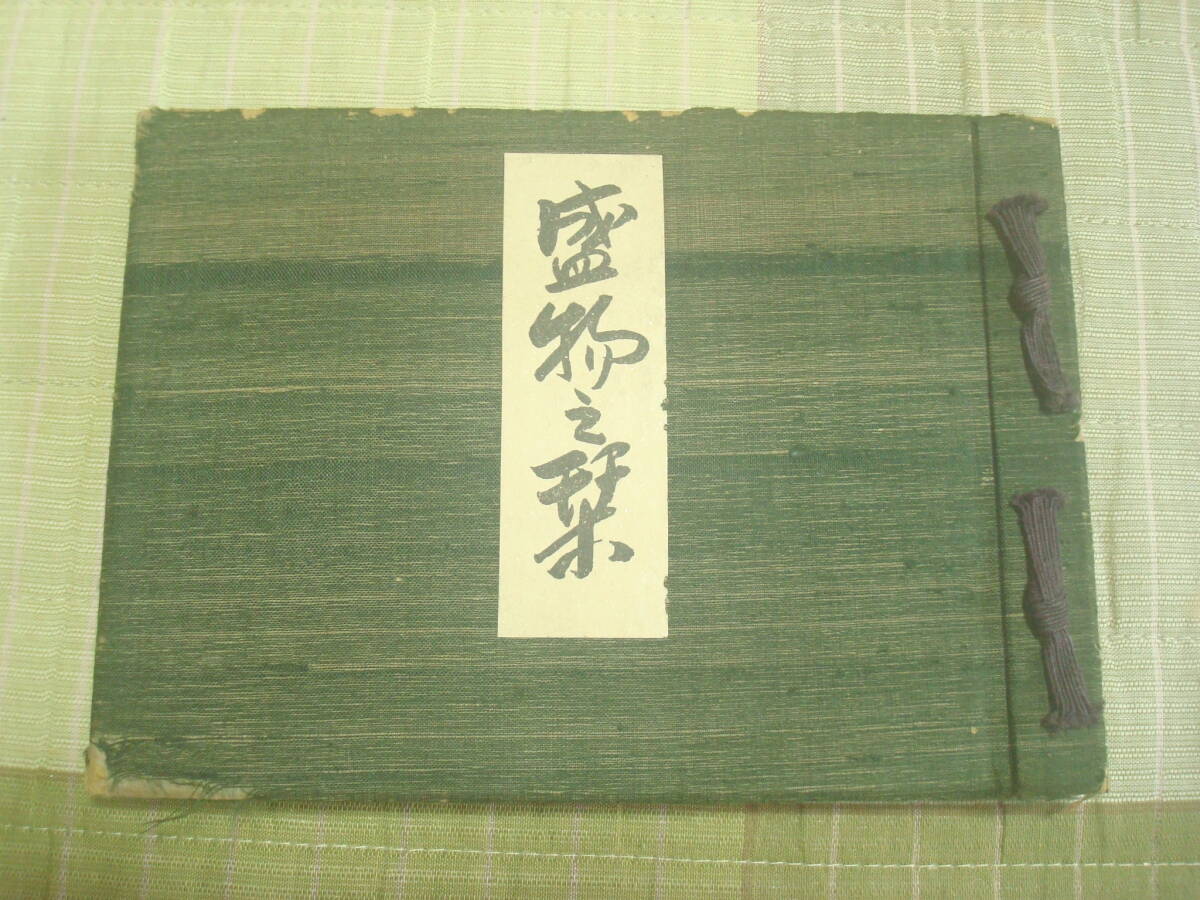 盛物之栞